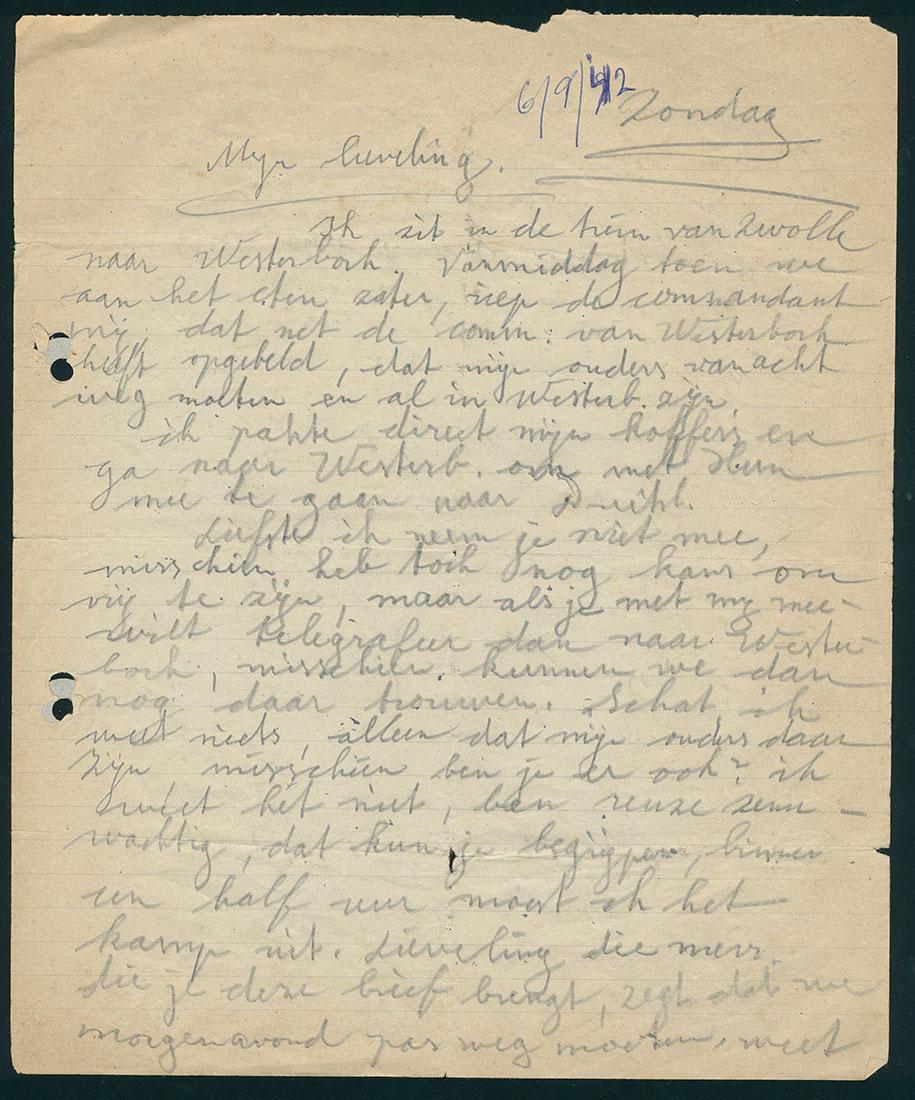 6/9/'42 Zondag
Mijn lieveling.
Ik zit in de trein van Zwolle
naar Westerbork. Vanmiddag toen we
aan het eten zaten, riep de commandant
mij, dat net de comm. van Westerbork
heeft opgebeld, dat mijn ouders vanacht
weg moeten en al in Westerb. zijn,
ik pakte direct mijn koffers en
ga naar Westerb. om met Hun
mee te gaan naar
Liefste ik neem je niet mee,
misschien heb toch nog kans om
vrij te zijn, maar als je met mij mee-
wilt telegrafeer dan naar Wester-
bork, misschien kunnen we dan
nog daar trouwen. Schat, ik
weet niets, alleen dat mijn ouders daar
zijn, misschien ben je er ook? ik
weet het niet, ben reuze zenu-
wachtig, dat kun je begrijpen, binnen
een half uur moest ik het
kamp uit. Lieveling die mens.
die je deze brief brengt, zegt dat we
morgenavond pas weg moeten, weet